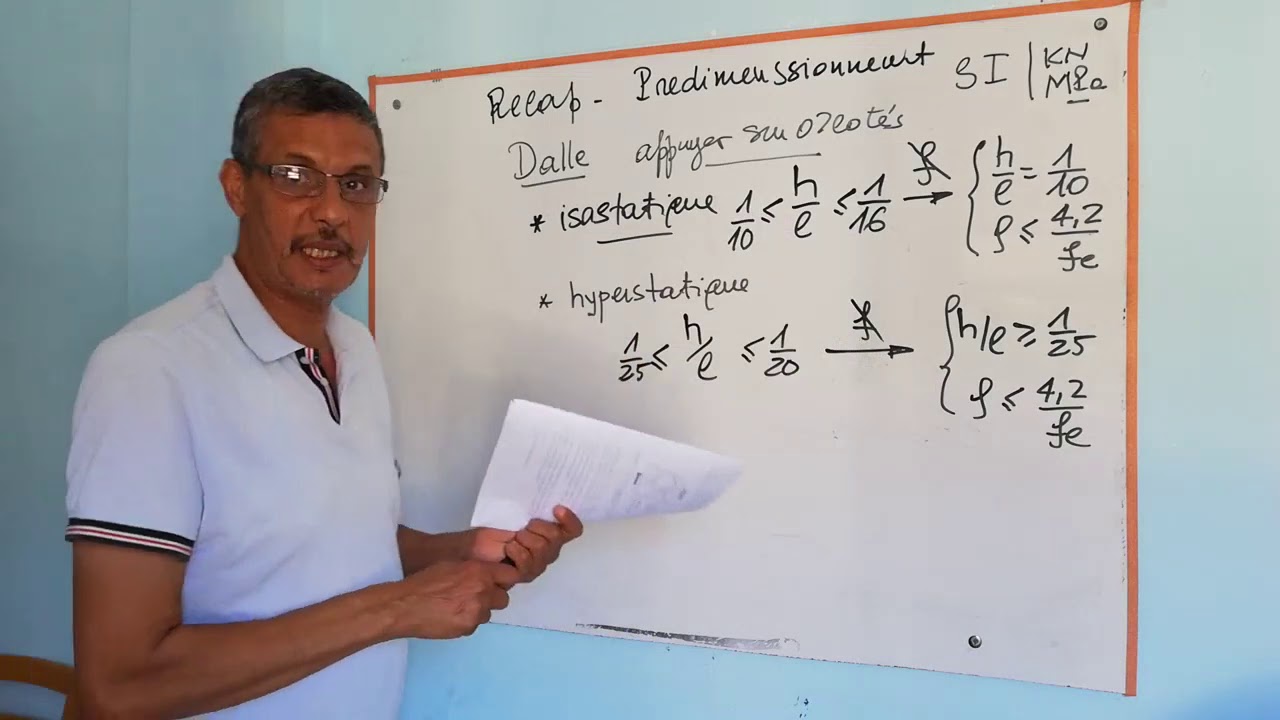 Recap - Predimenssionnement SI | KN
MPa
Dalle appuyer sur 02 cotés
* isastatique 1/10 ≤ h/e ≤ 1/16 → f { h/e = 1/10
ρ ≤ 4,2/fe
* hyperstatique
1/25 ≤ h/e ≤ 1/20 → f { h/e ≥ 1/25
ρ ≤ 4,2/fe